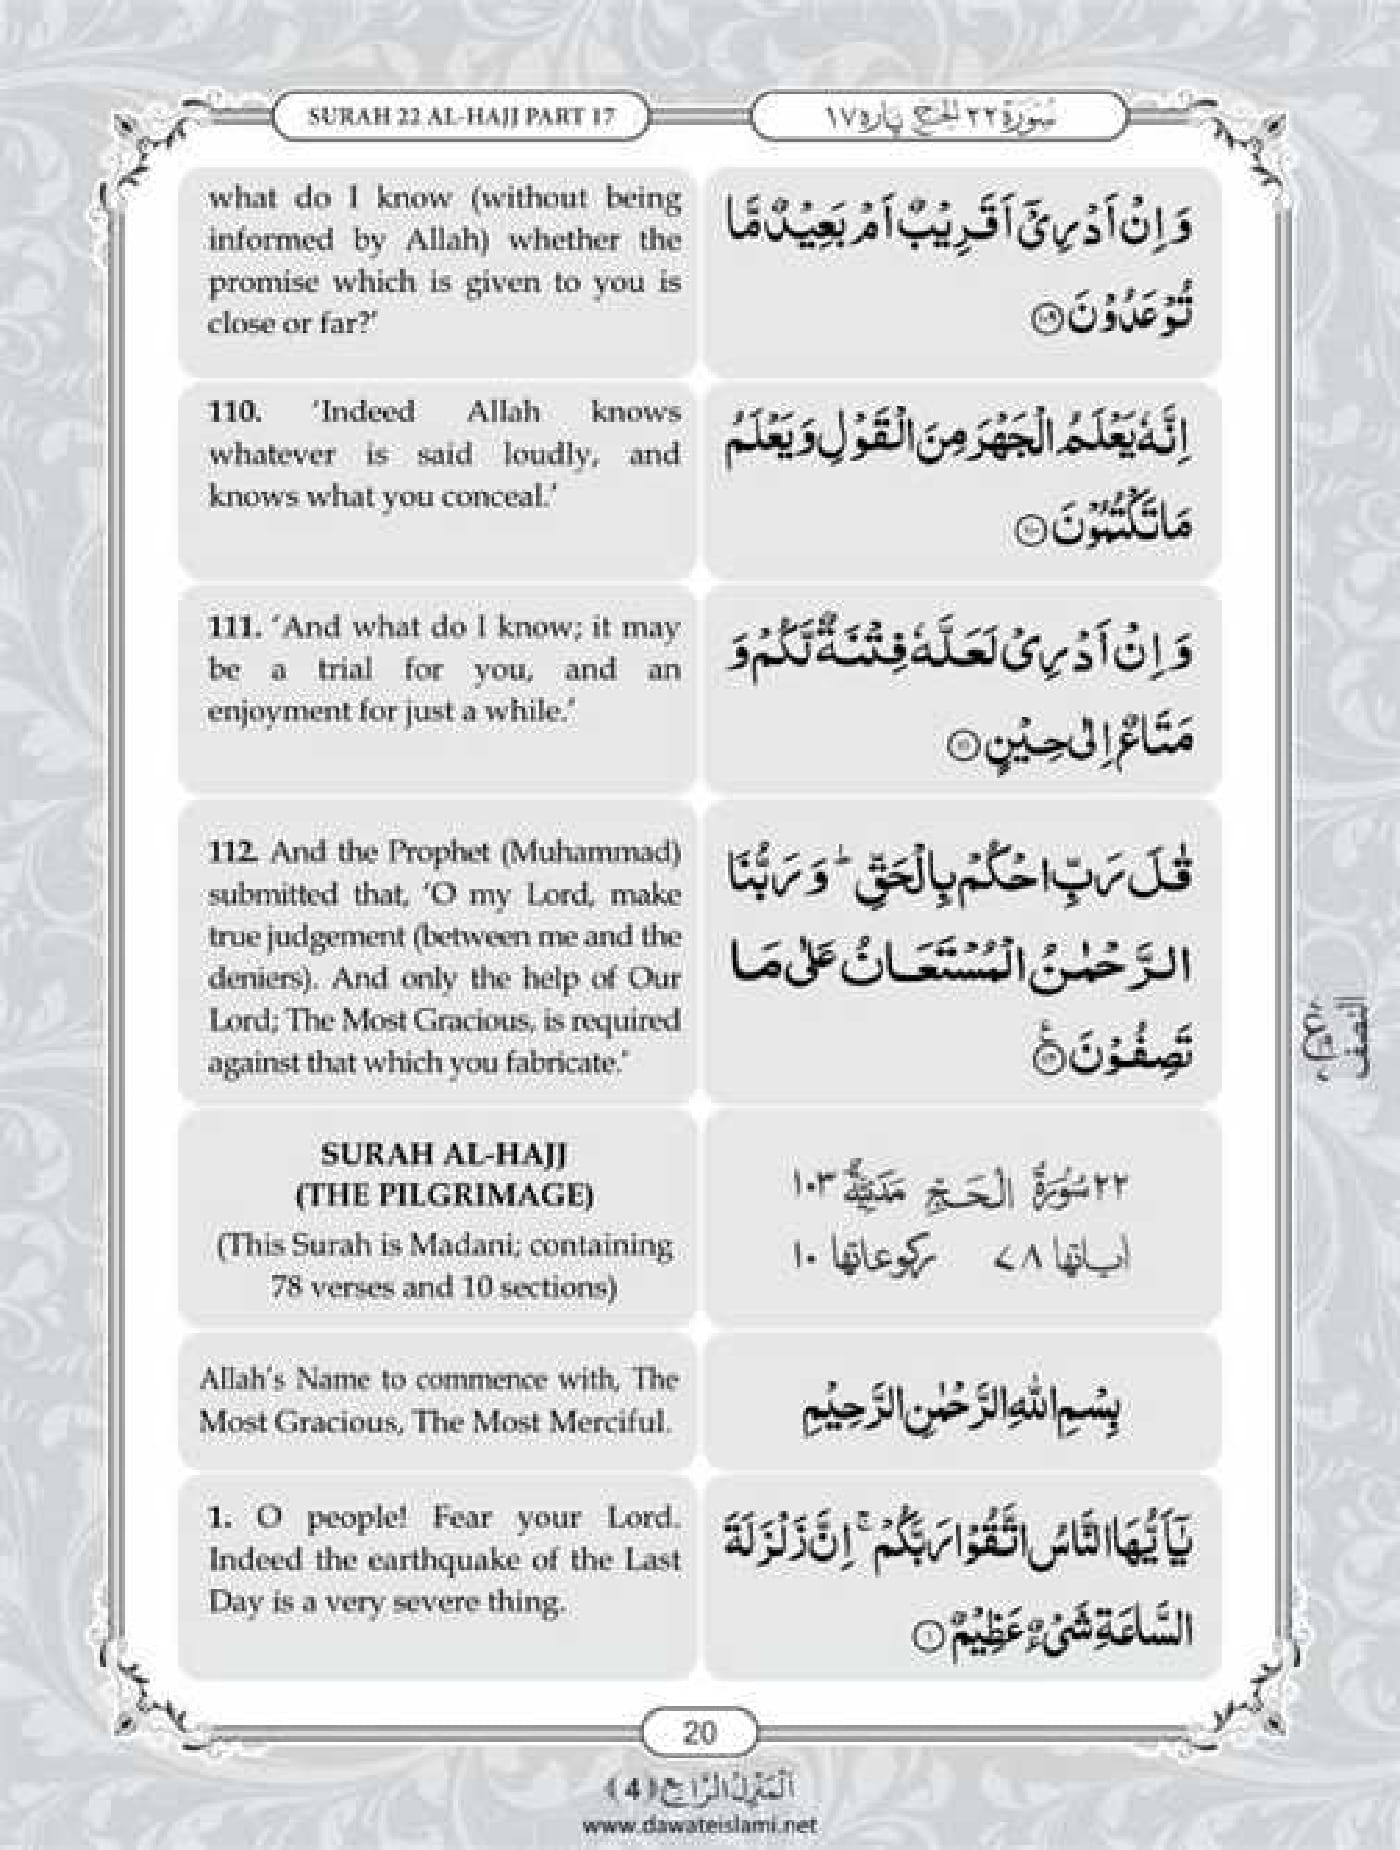 SURAH 22 AL-HAJJ PART 17
سُوۡرَةُ ٢٢ الحج پاره ١٧
what do I know (without being
informed by Allah) whether the
promise which is given to you is
close or far?’
وَ اِنۡ اَدۡرِیۡۤ اَقَرِیۡبٌ اَمۡ بَعِیۡدٌ مَّا
تُوۡعَدُوۡنَ ﴿١٠٩﴾
110. ‘Indeed Allah knows
whatever is said loudly, and
knows what you conceal.’
اِنَّهٗ یَعۡلَمُ الۡجَهۡرَ مِنَ الۡقَوۡلِ وَ یَعۡلَمُ
مَا تَكۡتُمُوۡنَ ﴿١١٠﴾
111. ‘And what do I know; it may
be a trial for you, and an
enjoyment for just a while.’
وَ اِنۡ اَدۡرِیۡ لَعَلَّهٗ فِتۡنَةٌ لَّكُمۡ وَ
مَتَاعٌ اِلٰی حِیۡنٍ ﴿١١١﴾
112. And the Prophet (Muhammad)
submitted that, ‘O my Lord, make
true judgement (between me and the
deniers). And only the help of Our
Lord; The Most Gracious, is required
against that which you fabricate.’
قٰلَ رَبِّ احۡكُمۡ بِالۡحَقِّ ؕ وَ رَبُّنَا
الرَّحۡمٰنُ الۡمُسۡتَعَانُ عَلٰی مَا
تَصِفُوۡنَ ﴿١١٢﴾
النصف
SURAH AL-HAJJ
(THE PILGRIMAGE)
(This Surah is Madani; containing
78 verses and 10 sections)
٢٢ سُوۡرَةُ الۡحَجّ مَدَنِیَّةٌ ١٠٣
اٰیاتها ٧٨ ركوعاتها ١٠
Allah's Name to commence with, The
Most Gracious, The Most Merciful.
بِسۡمِ اللّٰهِ الرَّحۡمٰنِ الرَّحِیۡمِ
1. O people! Fear your Lord.
Indeed the earthquake of the Last
Day is a very severe thing.
یٰۤاَیُّهَا النَّاسُ اتَّقُوۡا رَبَّكُمۡ ۚ اِنَّ زَلۡزَلَةَ
السَّاعَةِ شَیۡءٌ عَظِیۡمٌ ﴿١﴾
20
اَلۡمَنۡزِلُ الرَّابِع (4)
www.dawateislami.net